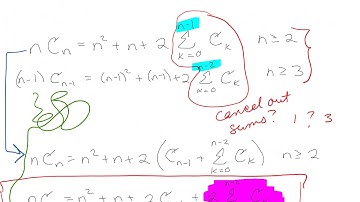 n C_n = n² + n + 2 Σ_{k=0}^{n-1} C_k   n ≥ 2
(n-1) C_{n-1} = (n-1)² + (n-1) + 2 Σ_{k=0}^{n-2} C_k   n ≥ 3
cancel out
sums? 1 ? 3
n C_n = n² + n + 2 ( C_{n-1} + Σ_{k=0}^{n-2} C_k )   n ≥ 2
n C_n = n² + n + 2 C